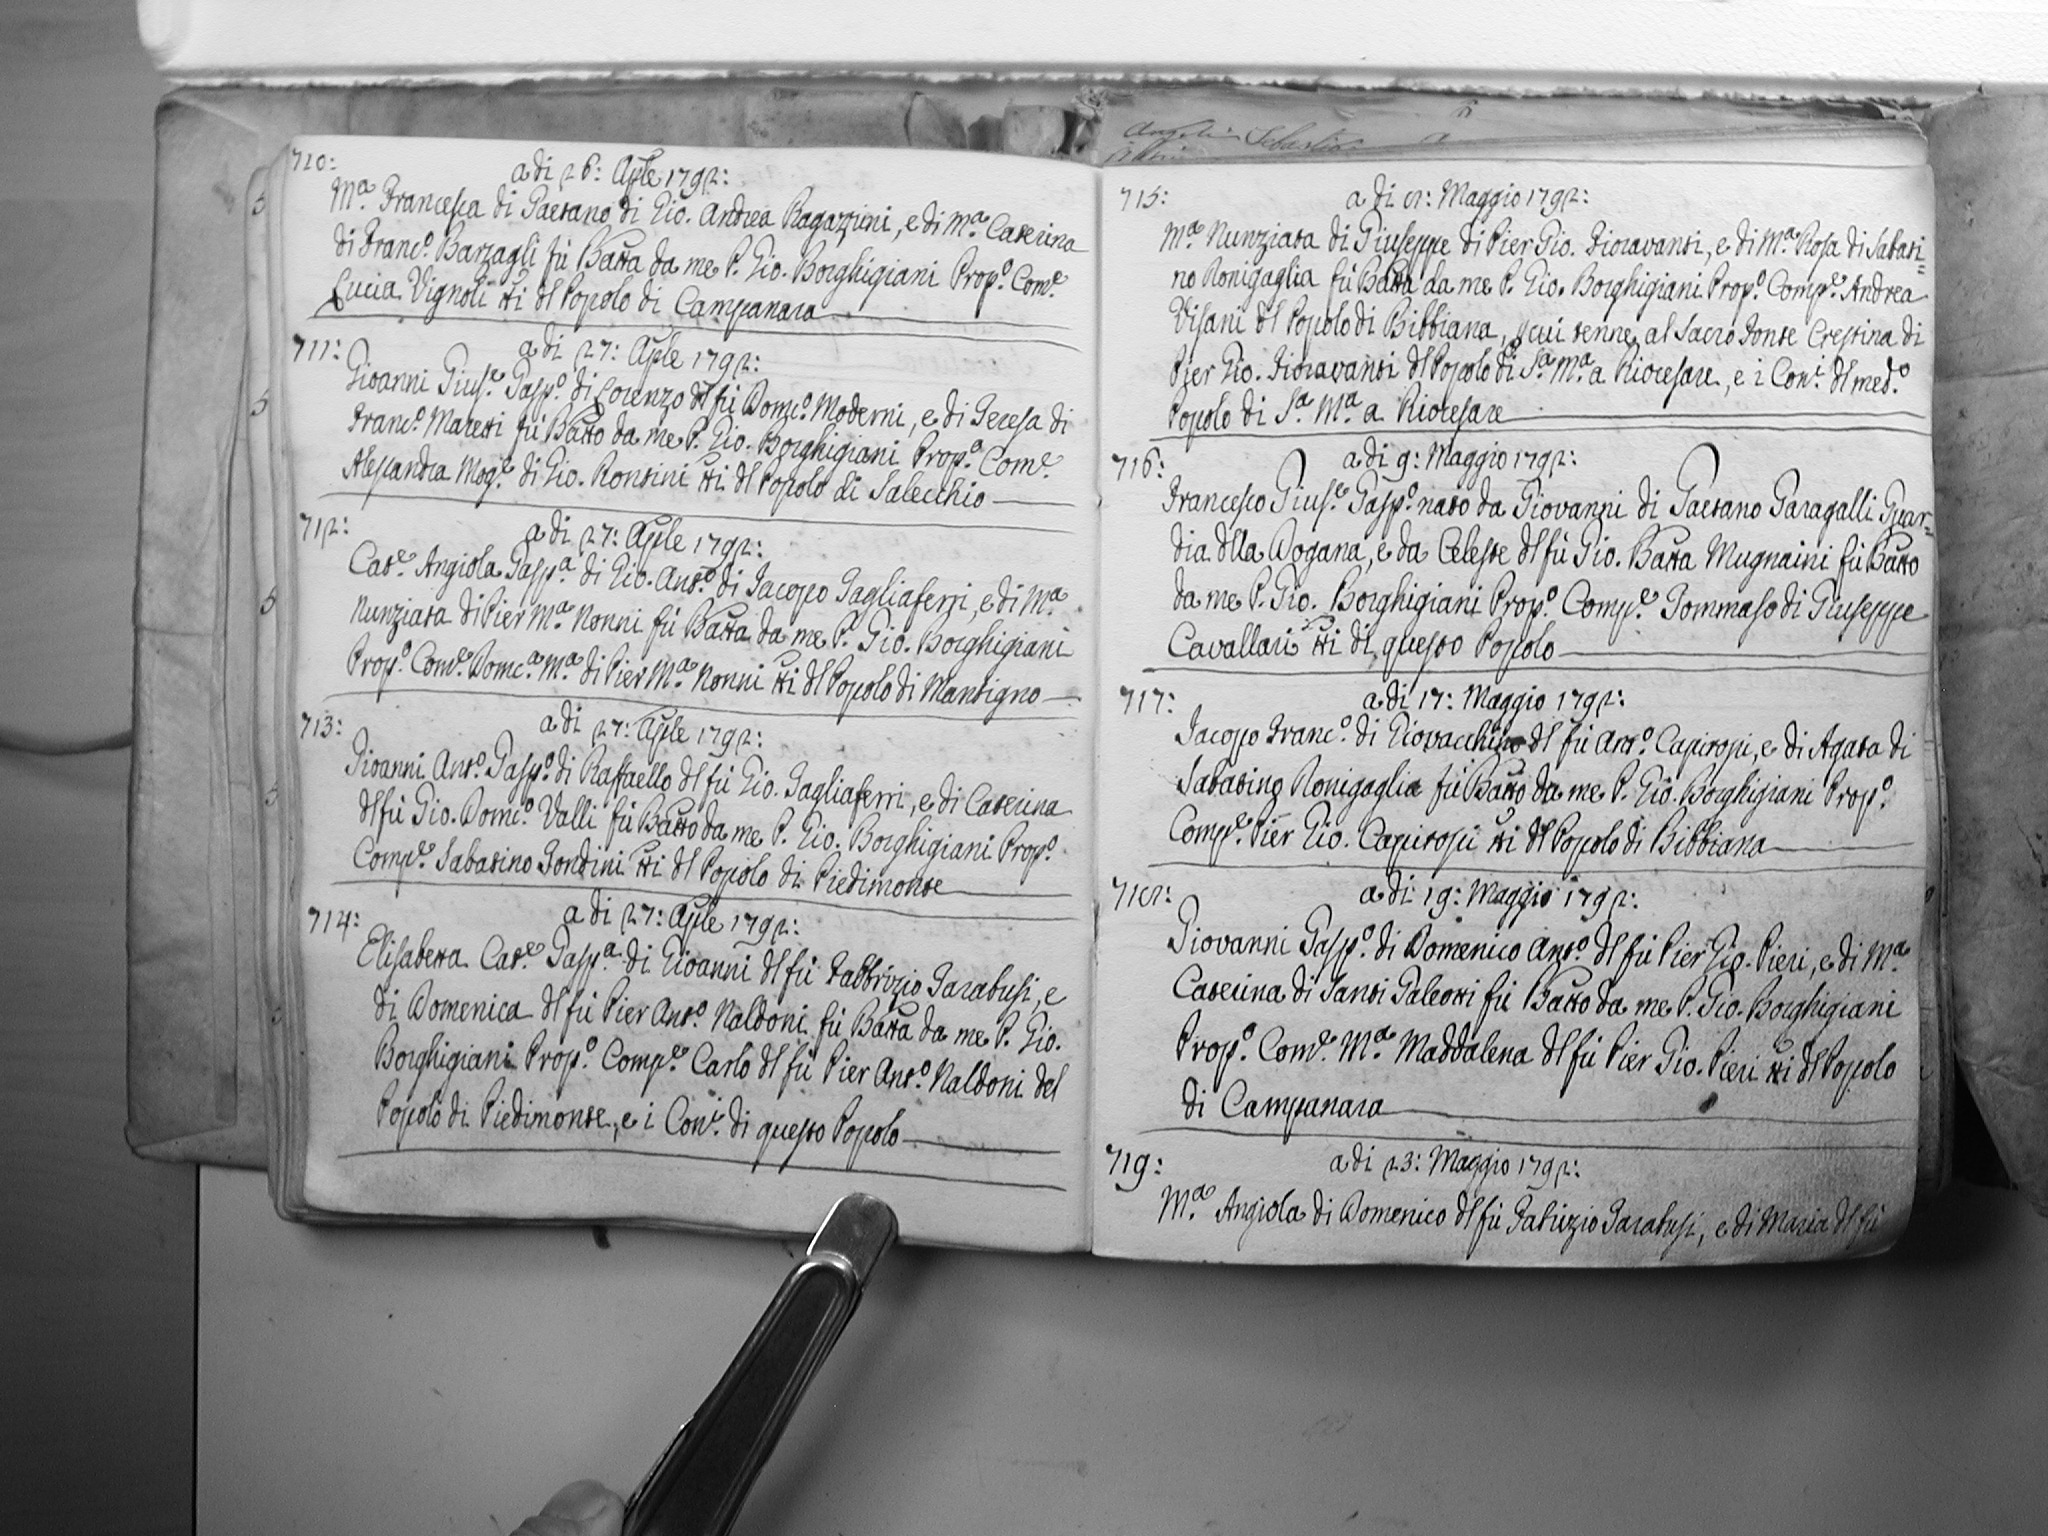 710:
a di 26: Aple 1792:
Mª. Francesca di Gaetano di Gio. Andrea Ragazzini, e di Mª. Caterina
di Francº. Barzagli fù Batta da me P. Gio. Borghigiani Propº. Comᵉ.
Lucia Vignoli tti dl Popolo di Campanara
711:
a di 27: Aple 1792:
Gioanni Giusᵉ. Gaspº. di Lorenzo dl fù Domcº. Moderni, e di Teresa di
Francº. Maretti fù Batto da me P. Gio. Borghigiani Propº. Comᵉ.
Alessandra Mogᵉ. di Gio. Rontini tti dl Popolo di Salecchio
712:
a di 27: Aple 1792:
Catᵉ. Angiola Gaspª. di Gio. Antº. di Jacopo Tagliaferri, e di Mª.
Nunziata di Pier Mª. Nonni fù Batta da me P. Gio. Borghigiani
Propº. Comᵉ. Domcª. Mª. di Pier Mª. Nonni tti dl Popolo di Mantigno
713:
a di 27: Aple 1792:
Gioanni Antº. Gaspº. di Raffaello dl fù Gio. Tagliaferri, e di Caterina
dl fù Gio. Domcº. Valli fù Batto da me P. Gio. Borghigiani Propº.
Compᵉ. Sabatino Tondini tti dl Popolo di Piedimonte
714:
a di 27: Aple 1792:
Elisabetta Catᵉ. Gaspª. di Gioanni dl fù Fabbrizio Tarabusi, e
di Domenica dl fù Pier Antº. Naldoni fù Batta da me P. Gio.
Borghigiani Propº. Compᵉ. Carlo dl fù Pier Antº. Naldoni del
Popolo di Piedimonte, e i Conⁱ. di questo Popolo
Angelo Sebastia
715:
a di 8: Maggio 1792:
Mª. Nunziata di Giuseppe di Pier Gio. Fioravanti, e di Mª. Rosa di Sabati=
no Ronigaglia fù Batta da me P. Gio. Borghigiani Propº. Compᵉ. Andrea
Visani dl Popolo di Bibbiana, p cui tenne al Sacro Fonte Crestina di
Pier Gio. Fioravanti dl Popolo di Sª. Mª. a Riocesare, e i Conⁱ. dl medº.
Popolo di Sª. Mª. a Riocesare
716:
a di 9: Maggio 1792:
Francesco Giusᵉ. Gaspº. nato da Giovanni di Gaetano Garagalli Guar=
dia dlla Dogana, e da Celeste dl fù Gio. Batta Mugnaini fù Batto
da me P. Gio. Borghigiani Propº. Compᵉ. Tommaso di Giuseppe
Cavallari tti di questo Popolo
717:
a di 17: Maggio 1792:
Jacopo Francº. di Giovacchino dl fù Antº. Capirossi, e di Agata di
Sabatino Ronigaglia fù Batto da me P. Gio. Borghigiani Propº.
Compᵉ. Pier Gio. Capirossi tti dl Popolo di Bibbiana
718:
a di 19: Maggio 1792:
Giovanni Gaspº. di Domenico Antº. dl fù Pier Gio. Pieri, e di Mª.
Caterina di Santi Galeotti fù Batto da me P. Gio. Borghigiani
Propº. Comᵉ. Mª. Maddalena dl fù Pier Gio. Pieri tti dl Popolo
di Campanara
719:
a di 23: Maggio 1792:
Mª. Angiola di Domenico dl fù Fabrizio Tarabusi, e di Maria dl fù